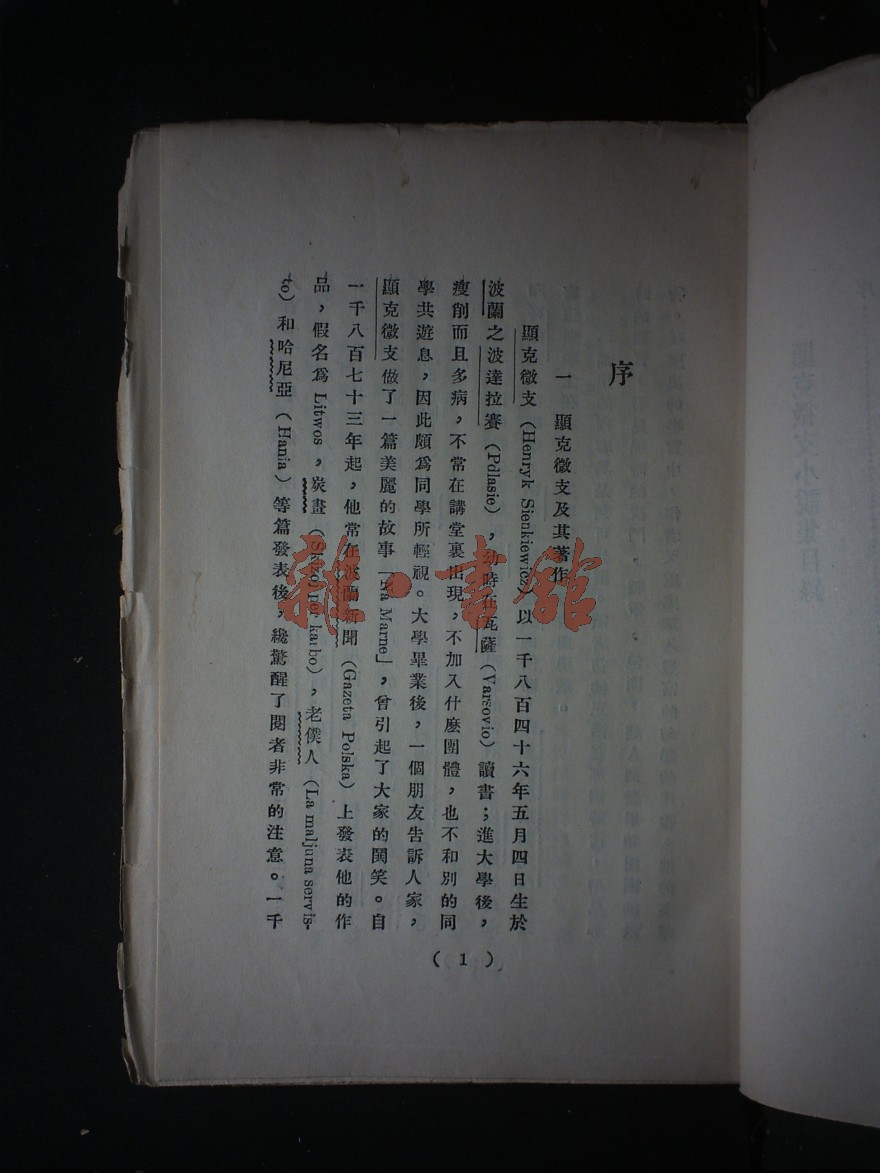 序
一　顯克微支及其著作
顯克微支（Henryk Sienkiewicz）以一千八百四十六年五月四日生於
波蘭之波達拉賽（Pdlasie），幼時在瓦薩（Varsovio）讀書；進大學後，
瘦削而且多病，不常在講堂裏出現，不加入什麼團體，也不和別的同
學共遊息，因此頗爲同學所輕視。大學畢業後，一個朋友告訴人家，
顯克微支做了一篇美麗的故事「Na Marne」，曾引起了大家的鬨笑。自
一千八百七十三年起，他常在波蘭新聞（Gazeta Polska）上發表他的作
品，假名爲 Litwos，炭畫（Skizoj per karbo），老僕人（La maljuna servis-
to）和哈尼亞（Hania）等篇發表後，纔驚醒了閱者非常的注意。一千
（1）
雜·書館